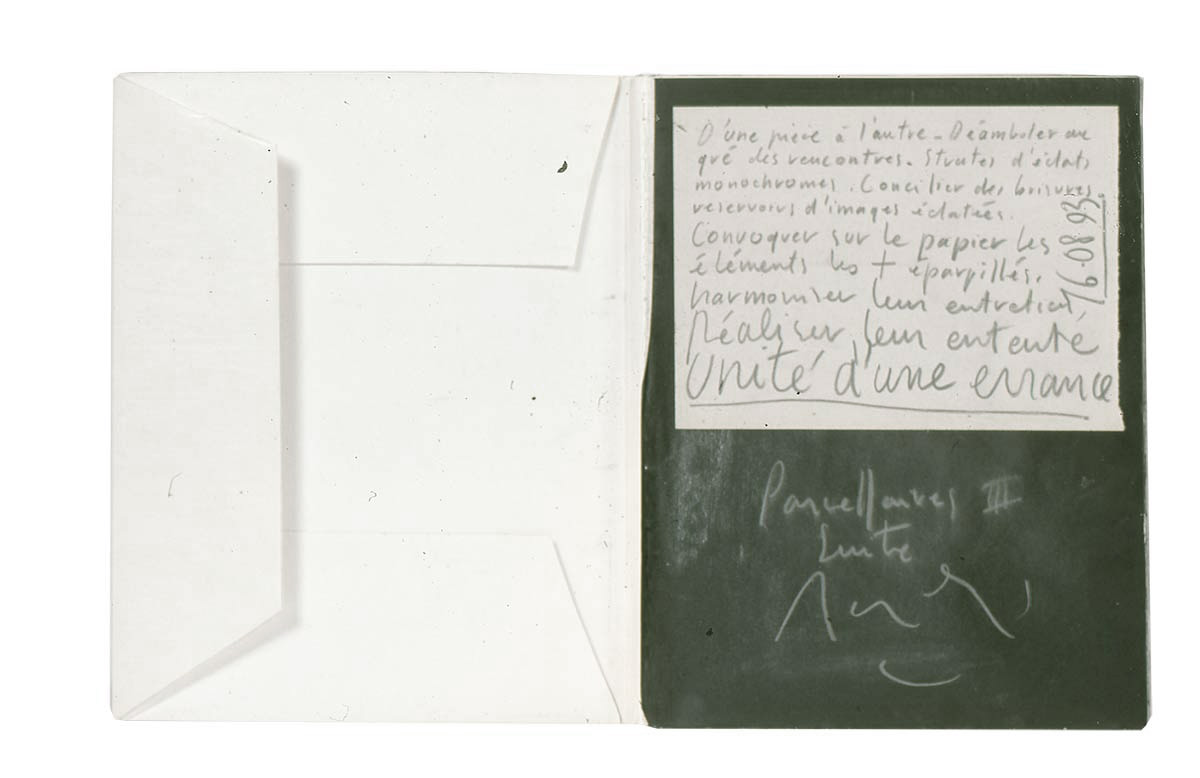 D'une pièce à l'autre - Déambuler au
gré des rencontres. Strates d'éclats
monochromes. Concilier des brisures,
reservoirs d'images éclatées.
Convoquer sur le papier les
éléments les + éparpillés,
harmoniser leur entretien,
Réaliser leur entente
Unité d'une errance
16.08.93
Parcellaires III
suite